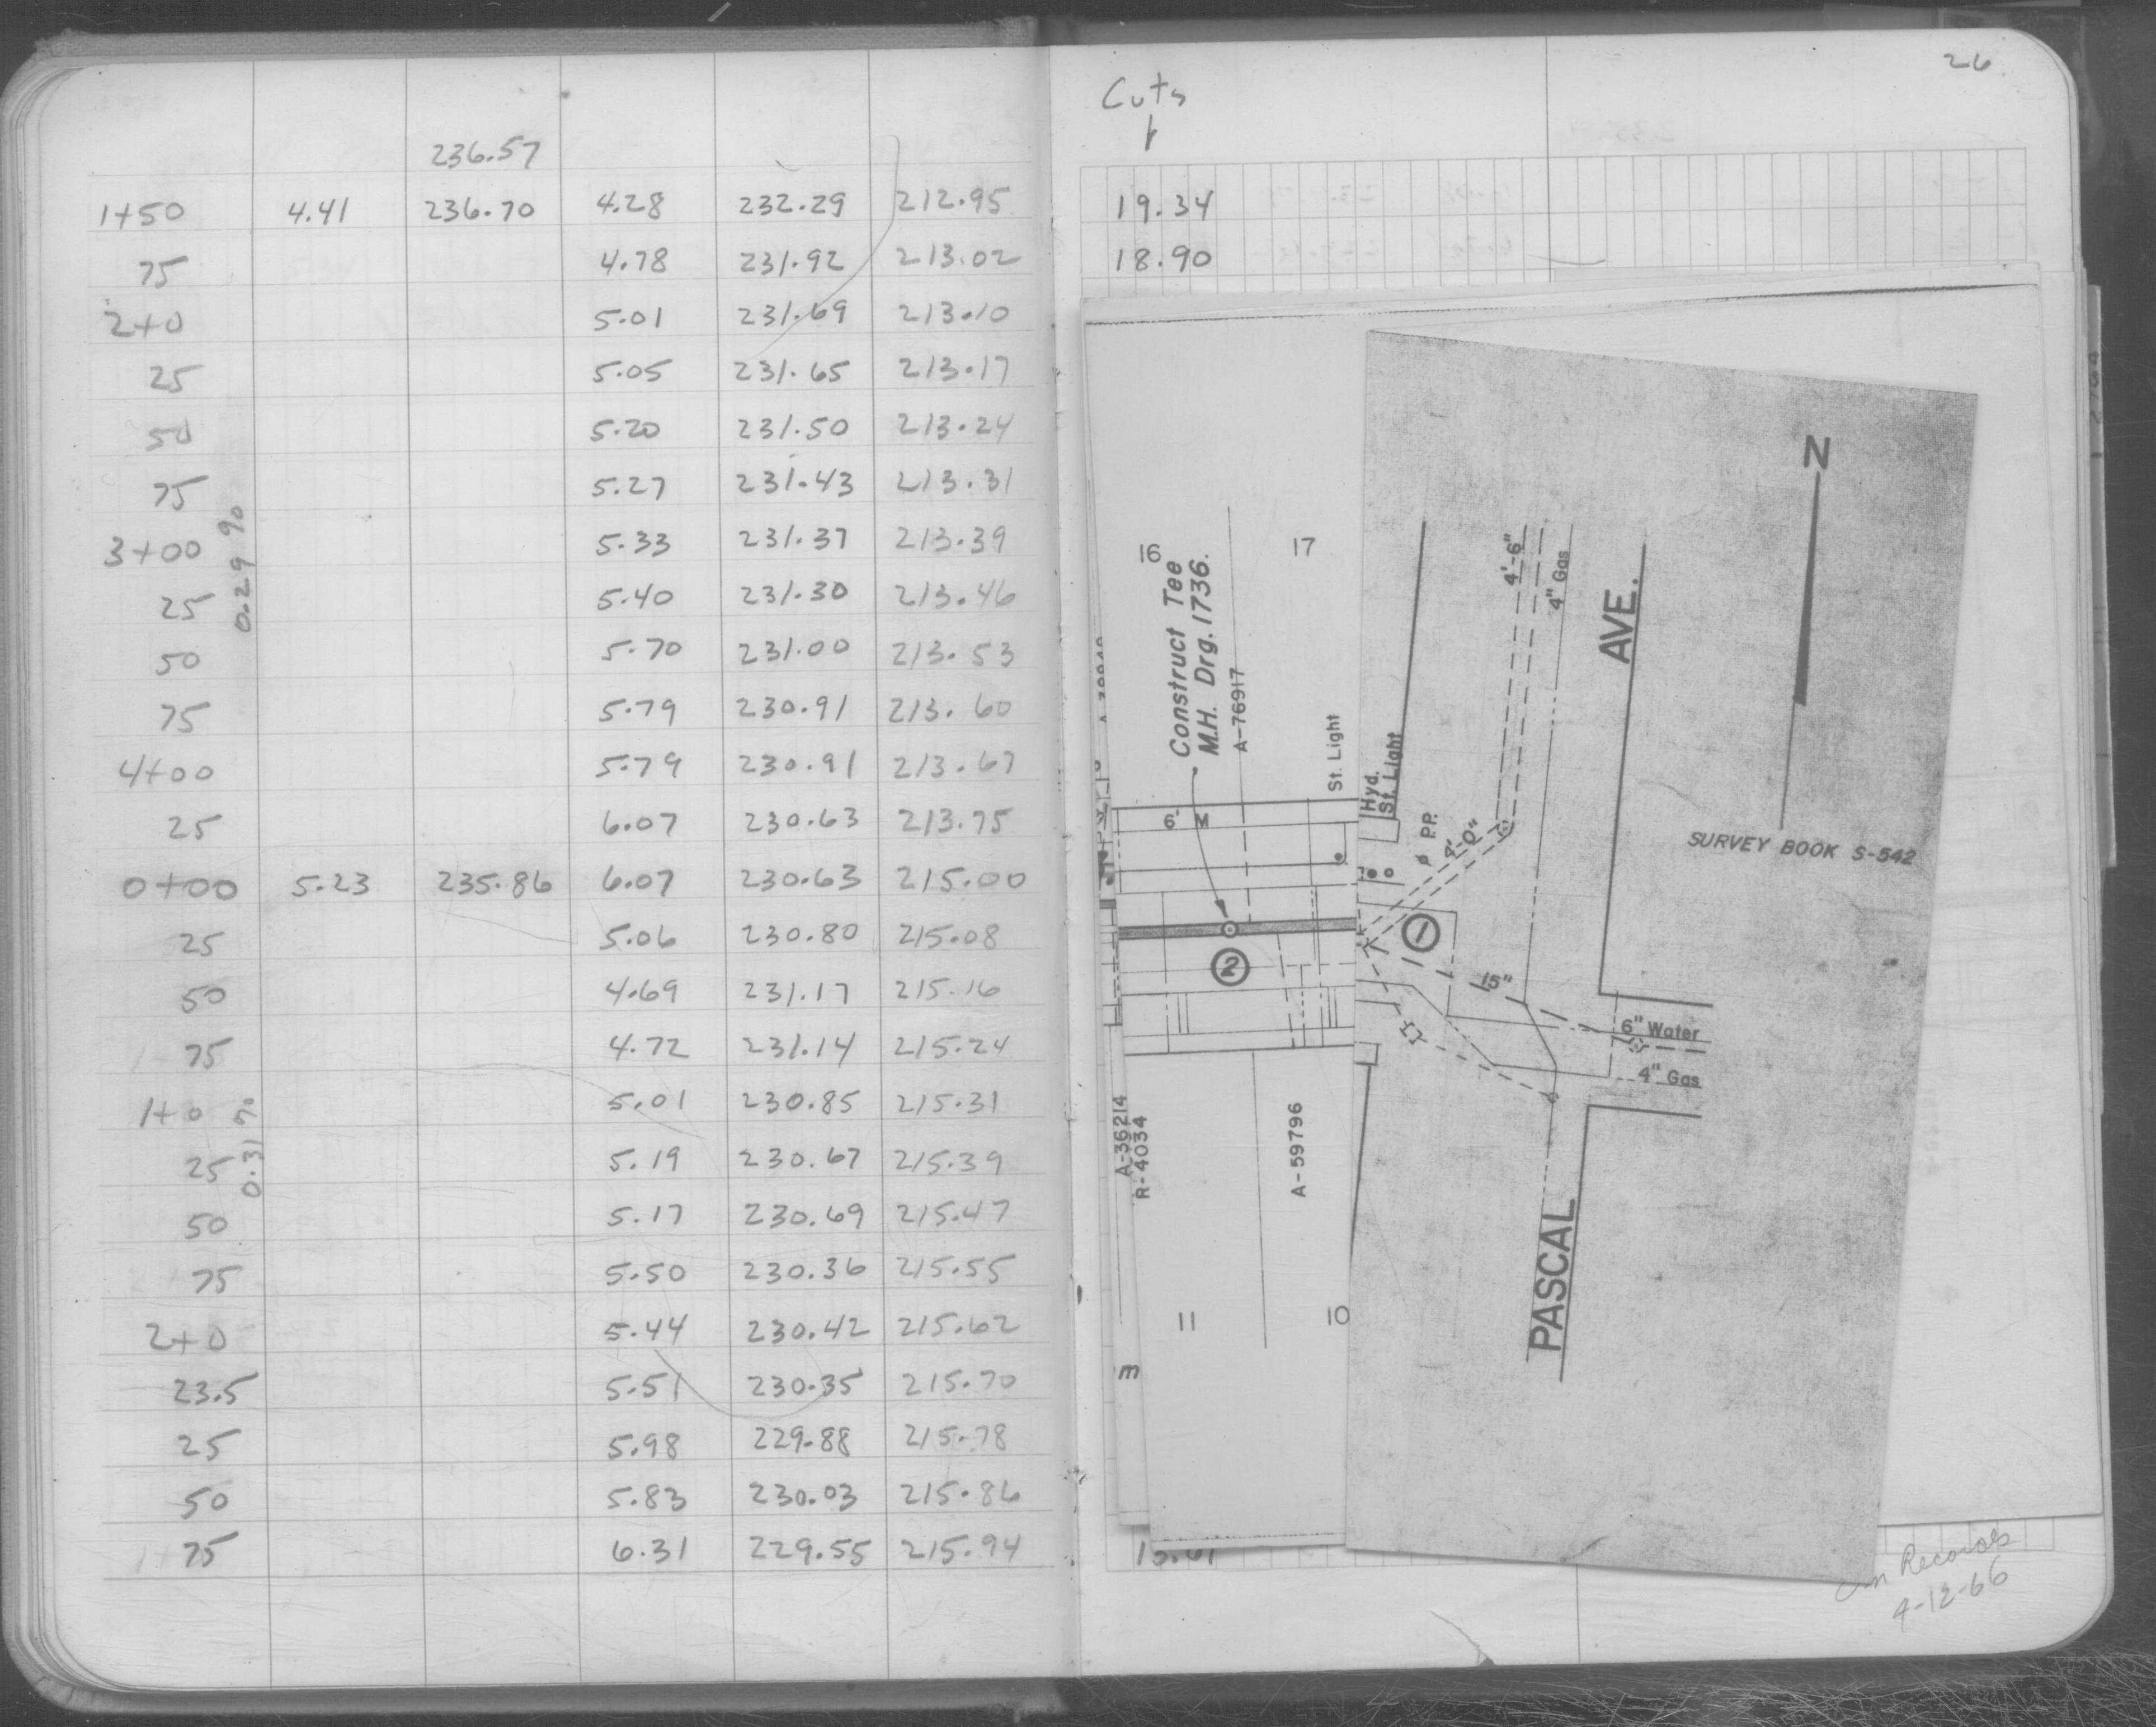 236.57
1+50 4.41 236.70 4.28 232.29 212.95
75 4.78 231.92 213.02
2+0 5.01 231.69 213.10
25 5.05 231.65 213.17
50 5.20 231.50 213.24
75 5.27 231.43 213.31
3+00 5.33 231.37 213.39
25 5.40 231.30 213.46
50 5.70 231.00 213.53
75 5.79 230.91 213.60
4+00 5.79 230.91 213.67
25 6.07 230.63 213.75
0.29 %
0+00 5.23 235.86 6.07 230.63 215.00
25 5.06 230.80 215.08
50 4.69 231.17 215.16
75 4.72 231.14 215.24
1+0 5.01 230.85 215.31
25 5.19 230.67 215.39
50 5.17 230.69 215.47
75 5.50 230.36 215.55
2+0 5.44 230.42 215.62
23.5 5.51 230.35 215.70
25 5.98 229.88 215.78
50 5.83 230.03 215.86
75 6.31 229.55 215.94
0.31 %
26
Cuts
19.34
18.90
16
17
Construct Tee
M.H. Drg. 1736.
A-76917
St. Light
6" M
2
A-36214
R-4034
A-59796
11
10
m
Hyd.
St. Light
P.P.
4'-0"
4'-6"
4" Gas
AVE.
N
SURVEY BOOK S-542
1
15"
6" Water
4" Gas
PASCAL
Records
4-12-66